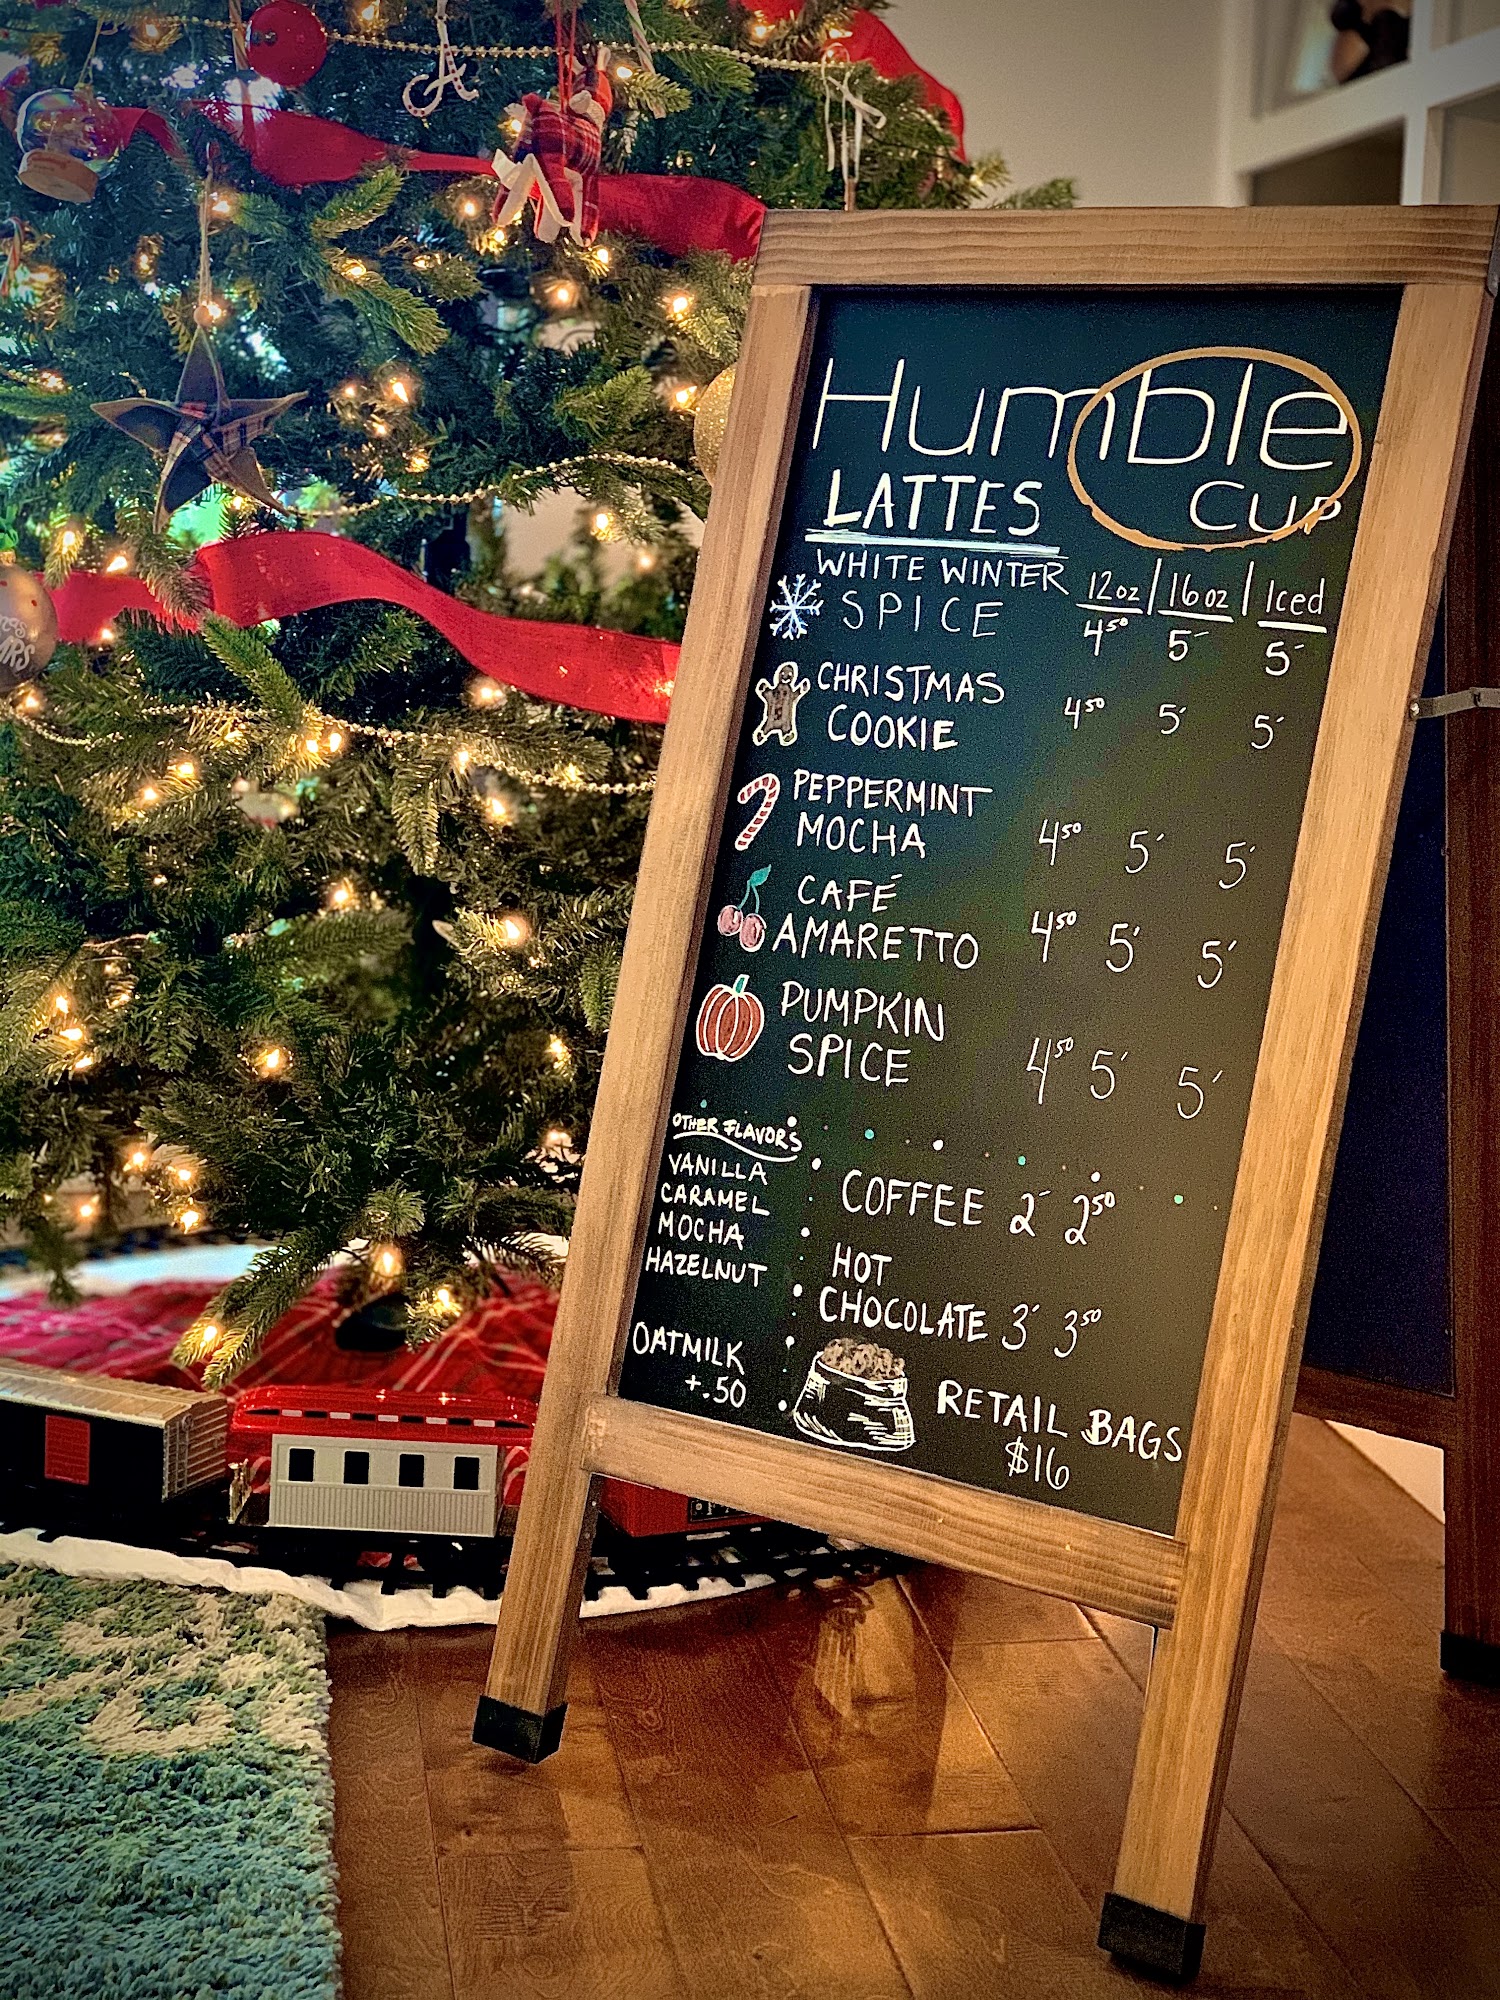 Humble
CUP
LATTES
WHITE WINTER
SPICE
12oz | 16oz | Iced
4⁵⁰ 5⁻ 5⁻
CHRISTMAS
COOKIE 4⁵⁰ 5⁻ 5⁻
PEPPERMINT
MOCHA 4⁵⁰ 5⁻ 5⁻
CAFÉ
AMARETTO 4⁵⁰ 5⁻ 5⁻
PUMPKIN
SPICE 4⁵⁰ 5⁻ 5⁻
OTHER FLAVORS
VANILLA
CARAMEL
MOCHA
HAZELNUT
OATMILK
+.50
COFFEE 2⁻ 2⁵⁰
HOT
CHOCOLATE 3⁻ 3⁵⁰
RETAIL BAGS
$16